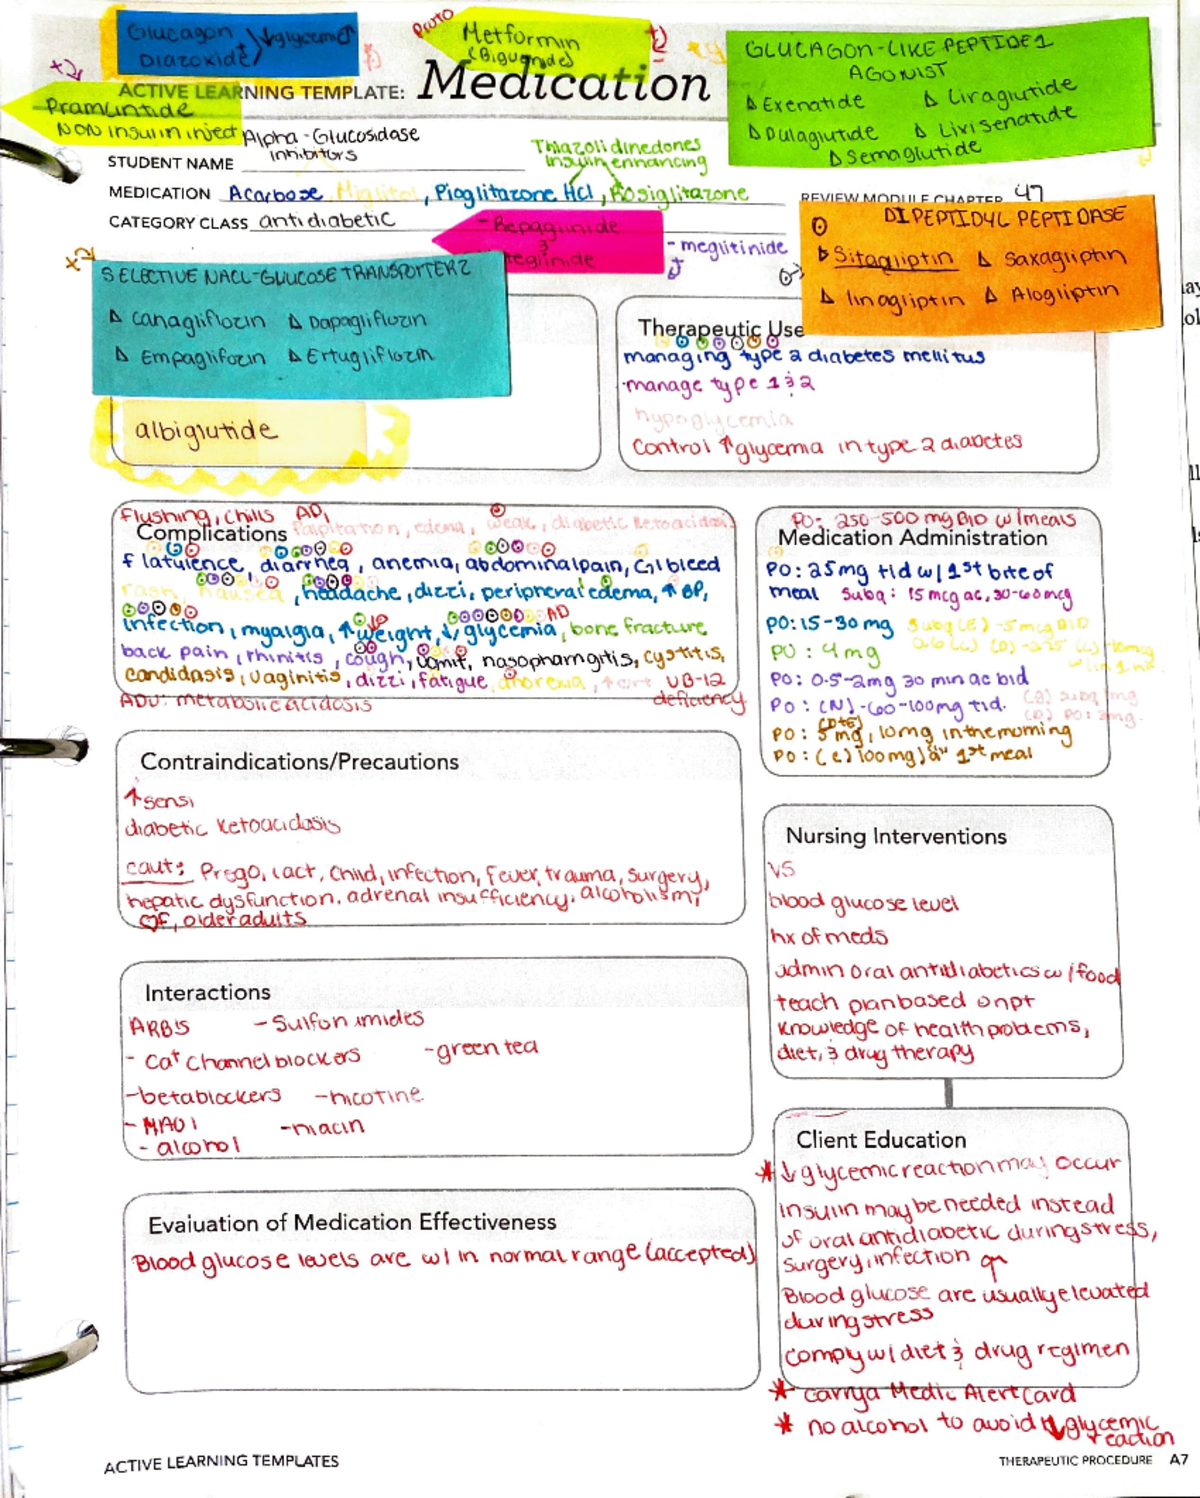 Glucagon
Diazoxide
↓glycemia
Proto
Metformin
(Biguanide)
x2
GLUCAGON-LIKE PEPTIDE 1
AGONIST
Δ Exenatide Δ Liraglutide
Δ Dulaglutide Δ Lixisenatide
Δ Semaglutide
x2
Pramlintide
NON insulin inject
ACTIVE LEARNING TEMPLATE: Medication
Alpha-Glucosidase
inhibitors
Thiazolidinedones
insulin enhancing
STUDENT NAME
MEDICATION Acarbose Miglitol, Pioglitazone HCl, Rosiglitazone
REVIEW MODULE CHAPTER 47
CATEGORY CLASS antidiabetic
- Repaglinide
&
teglinide
- meglitinide
DIPEPTIDYL PEPTIDASE
Δ Sitagliptin Δ Saxagliptin
Δ linagliptin Δ Alogliptin
x2
SELECTIVE NACL-GLUCOSE TRANSPORTER 2
Δ canagliflozin Δ Dapagliflozin
Δ Empaglifozin Δ Ertugliflozin
albiglutide
Therapeutic Use
managing type 2 diabetes mellitus
·manage type 1 & 2
hypoglycemia
Control ↑glycemia in type 2 diabetes
Flushing, chills AD,
Complications Palpitation, edema, weak, diabetic ketoacidosis
flatulence, diarrhea, anemia, abdominal pain, GI bleed
rash, nausea, headache, dizzi, peripheral edema, ↑ BP,
infection, myalgia, ↑weight, ↓ glycemia, bone fracture AD
back pain, rhinitis, cough, vomit, nasopharngitis, cystitis,
candidasis, vaginitis, dizzi, fatigue, anorexia, VB-12
ADV: metabolic acidosis deficiency
PO: 250-500 mg BID w/meals
Medication Administration
PO: 25mg tid w/ 1st bite of
meal Subq: 15 mcg ac, 30-60mcg
PO: 15-30 mg Subq (E) -5mcg BID
PO: 4mg
PO: 0.5-2mg 30 min ac bid
PO: (N)-60-100mg tid.
PO: 5mg, 10mg in the morning
PO: (c) 100mg) 1st meal
Contraindications/Precautions
↑sensi
diabetic ketoacidosis
caut: Prego, lact, child, infection, fever, trauma, surgery,
hepatic dysfunction, adrenal insufficiency, alcoholism,
♡F, older adults
Nursing Interventions
VS
blood glucose level
hx of meds
admin oral antidiabetics w/food
teach plan based on pt
knowledge of health problems,
diet, & drug therapy
Interactions
ARB's - Sulfonimides
- Ca+ Channel blockers -green tea
-beta blockers -nicotine
- MAOI -niacin
- alcohol
Client Education
* ↓glycemic reaction may occur
insulin may be needed instead
of oral antidiabetic during stress,
surgery, infection
Blood glucose are usually elevated
during stress
compy w/ diet & drug regimen
* carry a Medic Alert Card
* no alcohol to avoid ↓glycemic
reaction
Evaluation of Medication Effectiveness
Blood glucose levels are w/in normal range (accepted)
ACTIVE LEARNING TEMPLATES
THERAPEUTIC PROCEDURE A7